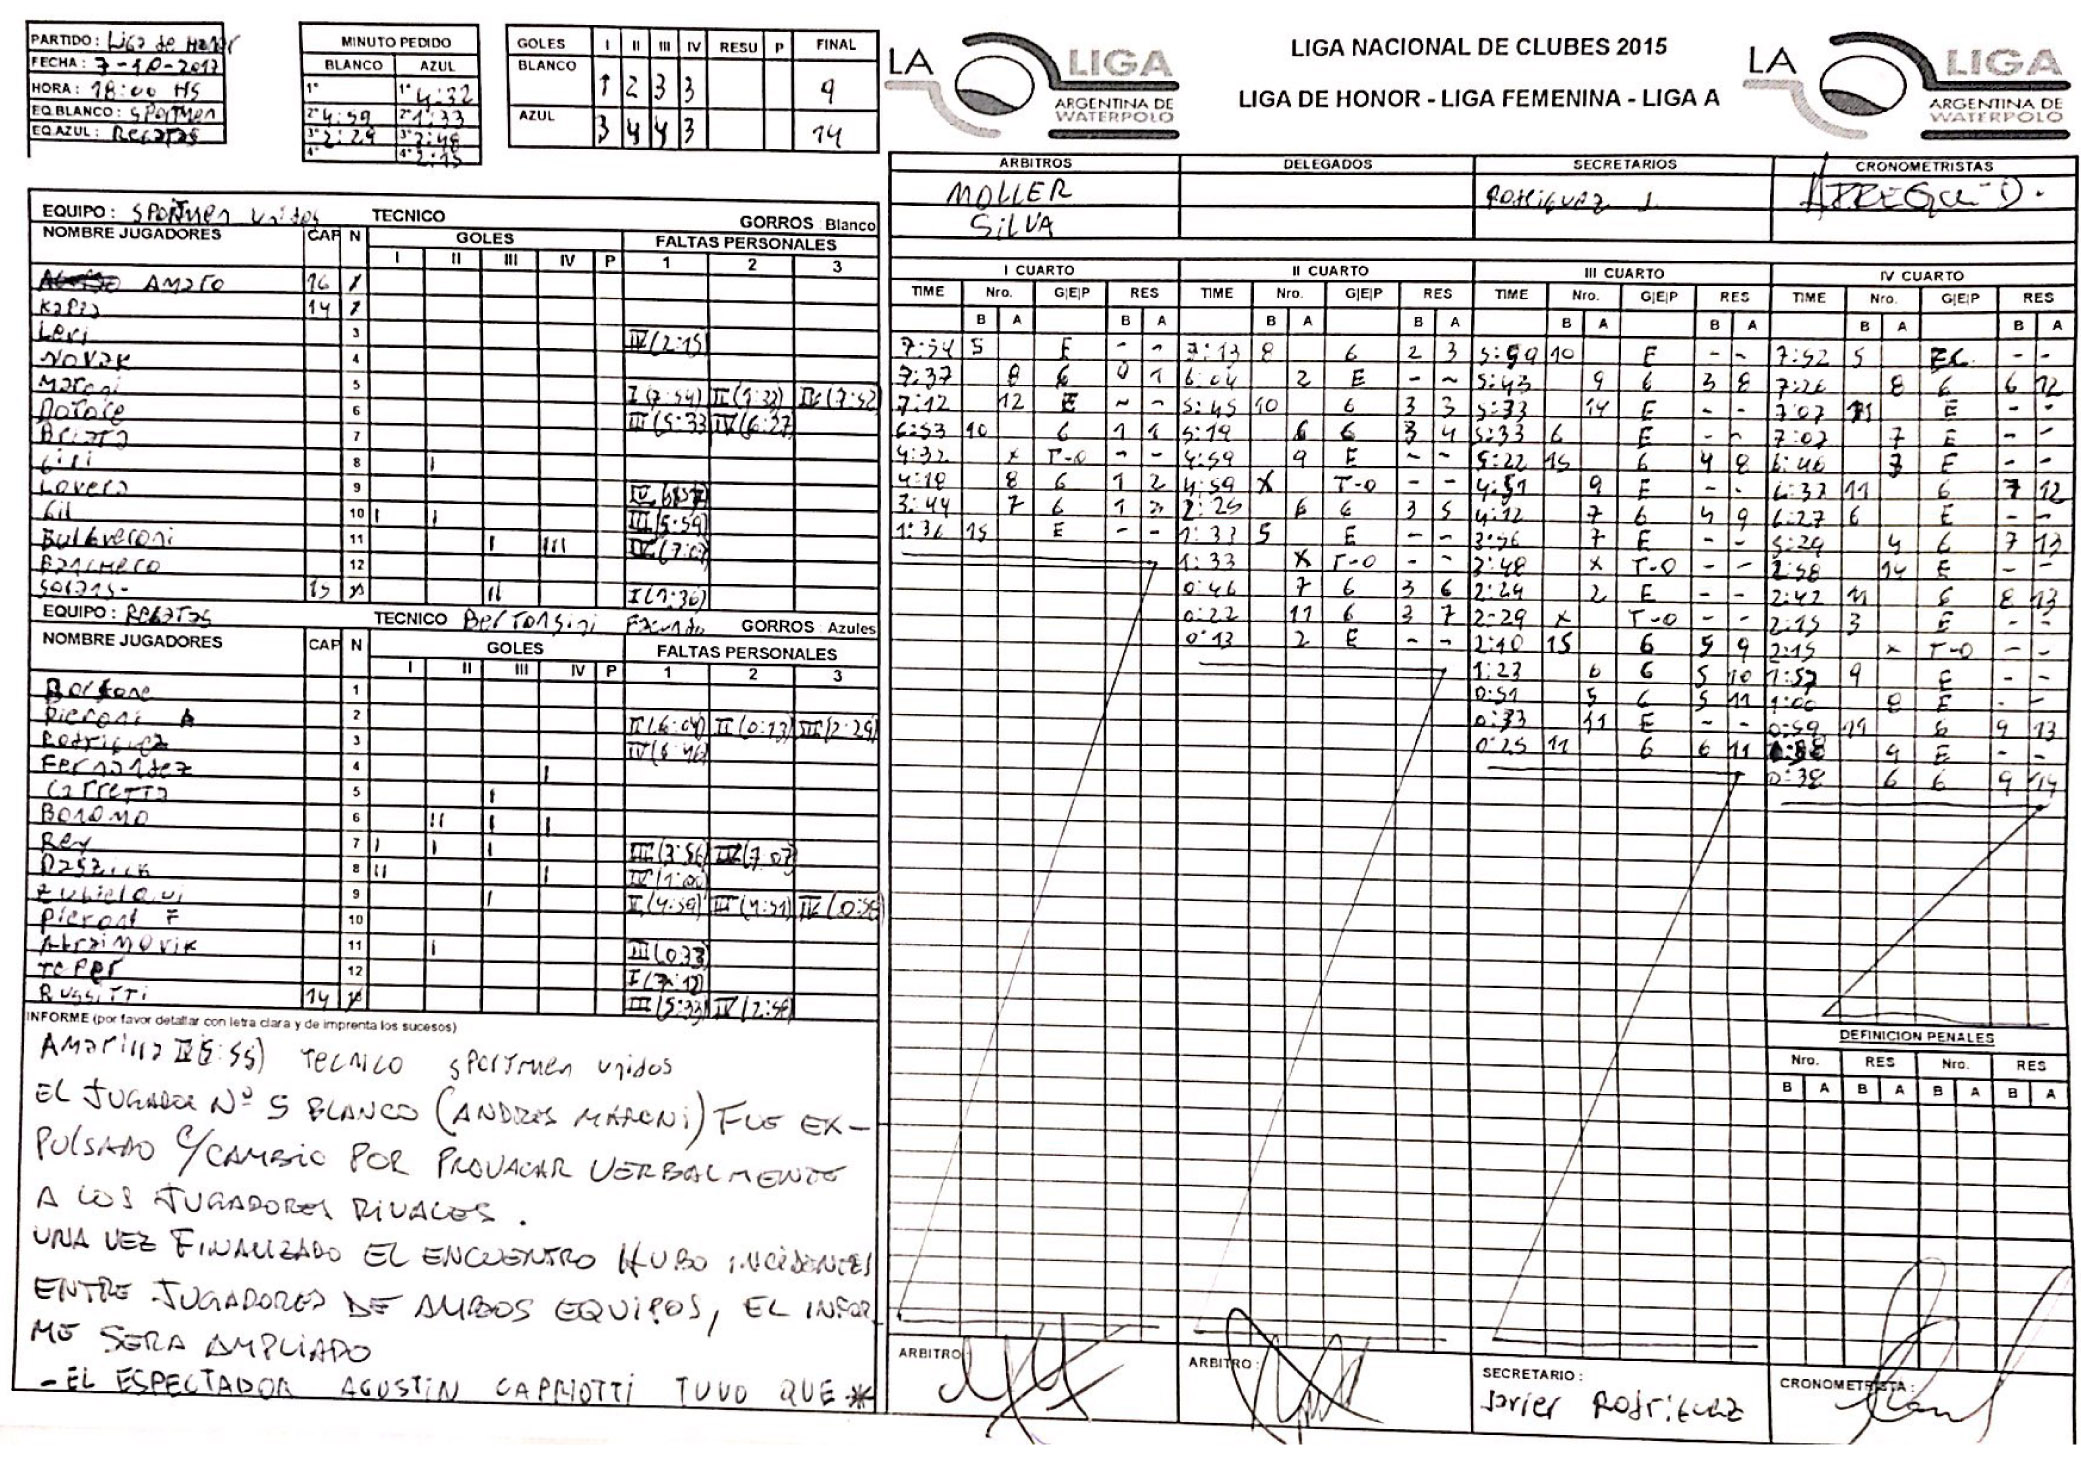 PARTIDO : Liga de Honor
FECHA : 7-10-2017
HORA : 18:00 HS
EQ.BLANCO : SPortmen
EQ.AZUL : Regatas
MINUTO PEDIDO
BLANCO AZUL
1° 1° 4:32
2° 4:59 2° 1:33
3° 2:29 3° 2:48
4° 4° 2:15
GOLES I II III IV RESU P FINAL
BLANCO 1 2 3 3 9
AZUL 3 4 4 3 14
LA LIGA
ARGENTINA DE
WATERPOLO
LIGA NACIONAL DE CLUBES 2015
LIGA DE HONOR - LIGA FEMENINA - LIGA A
LA LIGA
ARGENTINA DE
WATERPOLO
ARBITROS DELEGADOS SECRETARIOS CRONOMETRISTAS
MOLLER Rodriguez J.
SILVA
EQUIPO : SPortmen Unidos TECNICO GORROS : Blanco
NOMBRE JUGADORES CAP N GOLES FALTAS PERSONALES
I II III IV P 1 2 3
Amaro 16
14
Levi 3 IV (2:15)
Novak 4
Maroni 5 I (7:54) II (1:33) IV (7:52)
6 III (5:33) IV (6:27)
7
8 I
Lovera 9
Gil 10 I I III (5:59)
11 I III IV (7:07)
12
15 II I (1:36)
EQUIPO : Regatas TECNICO Facundo GORROS : Azules
NOMBRE JUGADORES CAP N GOLES FALTAS PERSONALES
I II III IV P 1 2 3
1
Pieroni A 2 II (6:04) II (0:13) III (2:29)
Rodriguez 3 IV (6:46)
Fernandez 4 I
Carretto 5 I
Bonomo 6 II I I
Rey 7 I I I III (3:56) IV (7:07)
8 II I IV (1:00)
9 I II (4:59) III (4:51) IV (0:58)
Pieroni F 10
11 I III (0:33)
Teper 12 I (7:12)
Russitti 14 III (5:33) IV (2:58)
INFORME (por favor detallar con letra clara y de imprenta los sucesos)
Amarilla TECNICO SPortmen Unidos
EL JUGADOR Nº 5 BLANCO (ANDRES MARONI) FUE EX-
PULSADO C/CAMBIO POR PROVOCAR VERBALMENTE
A LOS JUGADORES RIVALES.
UNA VEZ FINALIZADO EL ENCUENTRO HUBO INCIDENTES
ENTRE JUGADORES DE AMBOS EQUIPOS, EL INFOR
ME SERA AMPLIADO
- EL ESPECTADOR AGUSTIN CAPRIOTTI TUVO QUE *
I CUARTO
TIME Nro. G|E|P RES
B A B A
7:54 5 E - -
7:37 8 G 0 1
7:12 12 E - -
6:53 10 G 1 1
4:32 x T-O - -
4:18 8 G 1 2
3:44 7 G 1 3
1:36 15 E - -
II CUARTO
TIME Nro. G|E|P RES
B A B A
7:13 8 G 2 3
6:04 2 E - -
5:45 10 G 3 3
5:19 6 G 3 4
4:59 9 E - -
4:59 X T-O - -
2:25 6 G 3 5
1:33 5 E - -
1:33 X T-O - -
0:46 7 G 3 6
0:22 11 G 3 7
0:13 2 E - -
III CUARTO
TIME Nro. G|E|P RES
B A B A
5:59 10 E - -
5:43 9 G 3 8
5:33 14 E - -
5:33 6 E - -
5:22 15 G 4 8
4:51 9 E - -
4:12 7 G 4 9
3:56 7 E - -
2:48 x T-O - -
2:29 2 E - -
2:29 x T-O - -
2:10 15 G 5 9
1:23 6 G 5 10
0:51 5 G 5 11
0:33 11 E - -
0:25 11 G 6 11
IV CUARTO
TIME Nro. G|E|P RES
B A B A
7:52 5 EC - -
7:26 8 G 6 12
7:07 11 E - -
7:07 7 E - -
6:46 E - -
6:37 11 G 7 12
6:27 6 E - -
5:29 4 G 7 13
2:58 14 E - -
2:42 11 G 8 13
2:15 3 E - -
2:15 x T-O - -
1:57 9 E - -
1:00 8 E - -
0:59 11 G 9 13
0:58 9 E - -
0:38 6 G 9 14
DEFINICION PENALES
Nro. RES Nro. RES
B A B A B A B A
ARBITRO :
ARBITRO :
SECRETARIO :
Javier Rodriguez
CRONOMETRISTA :